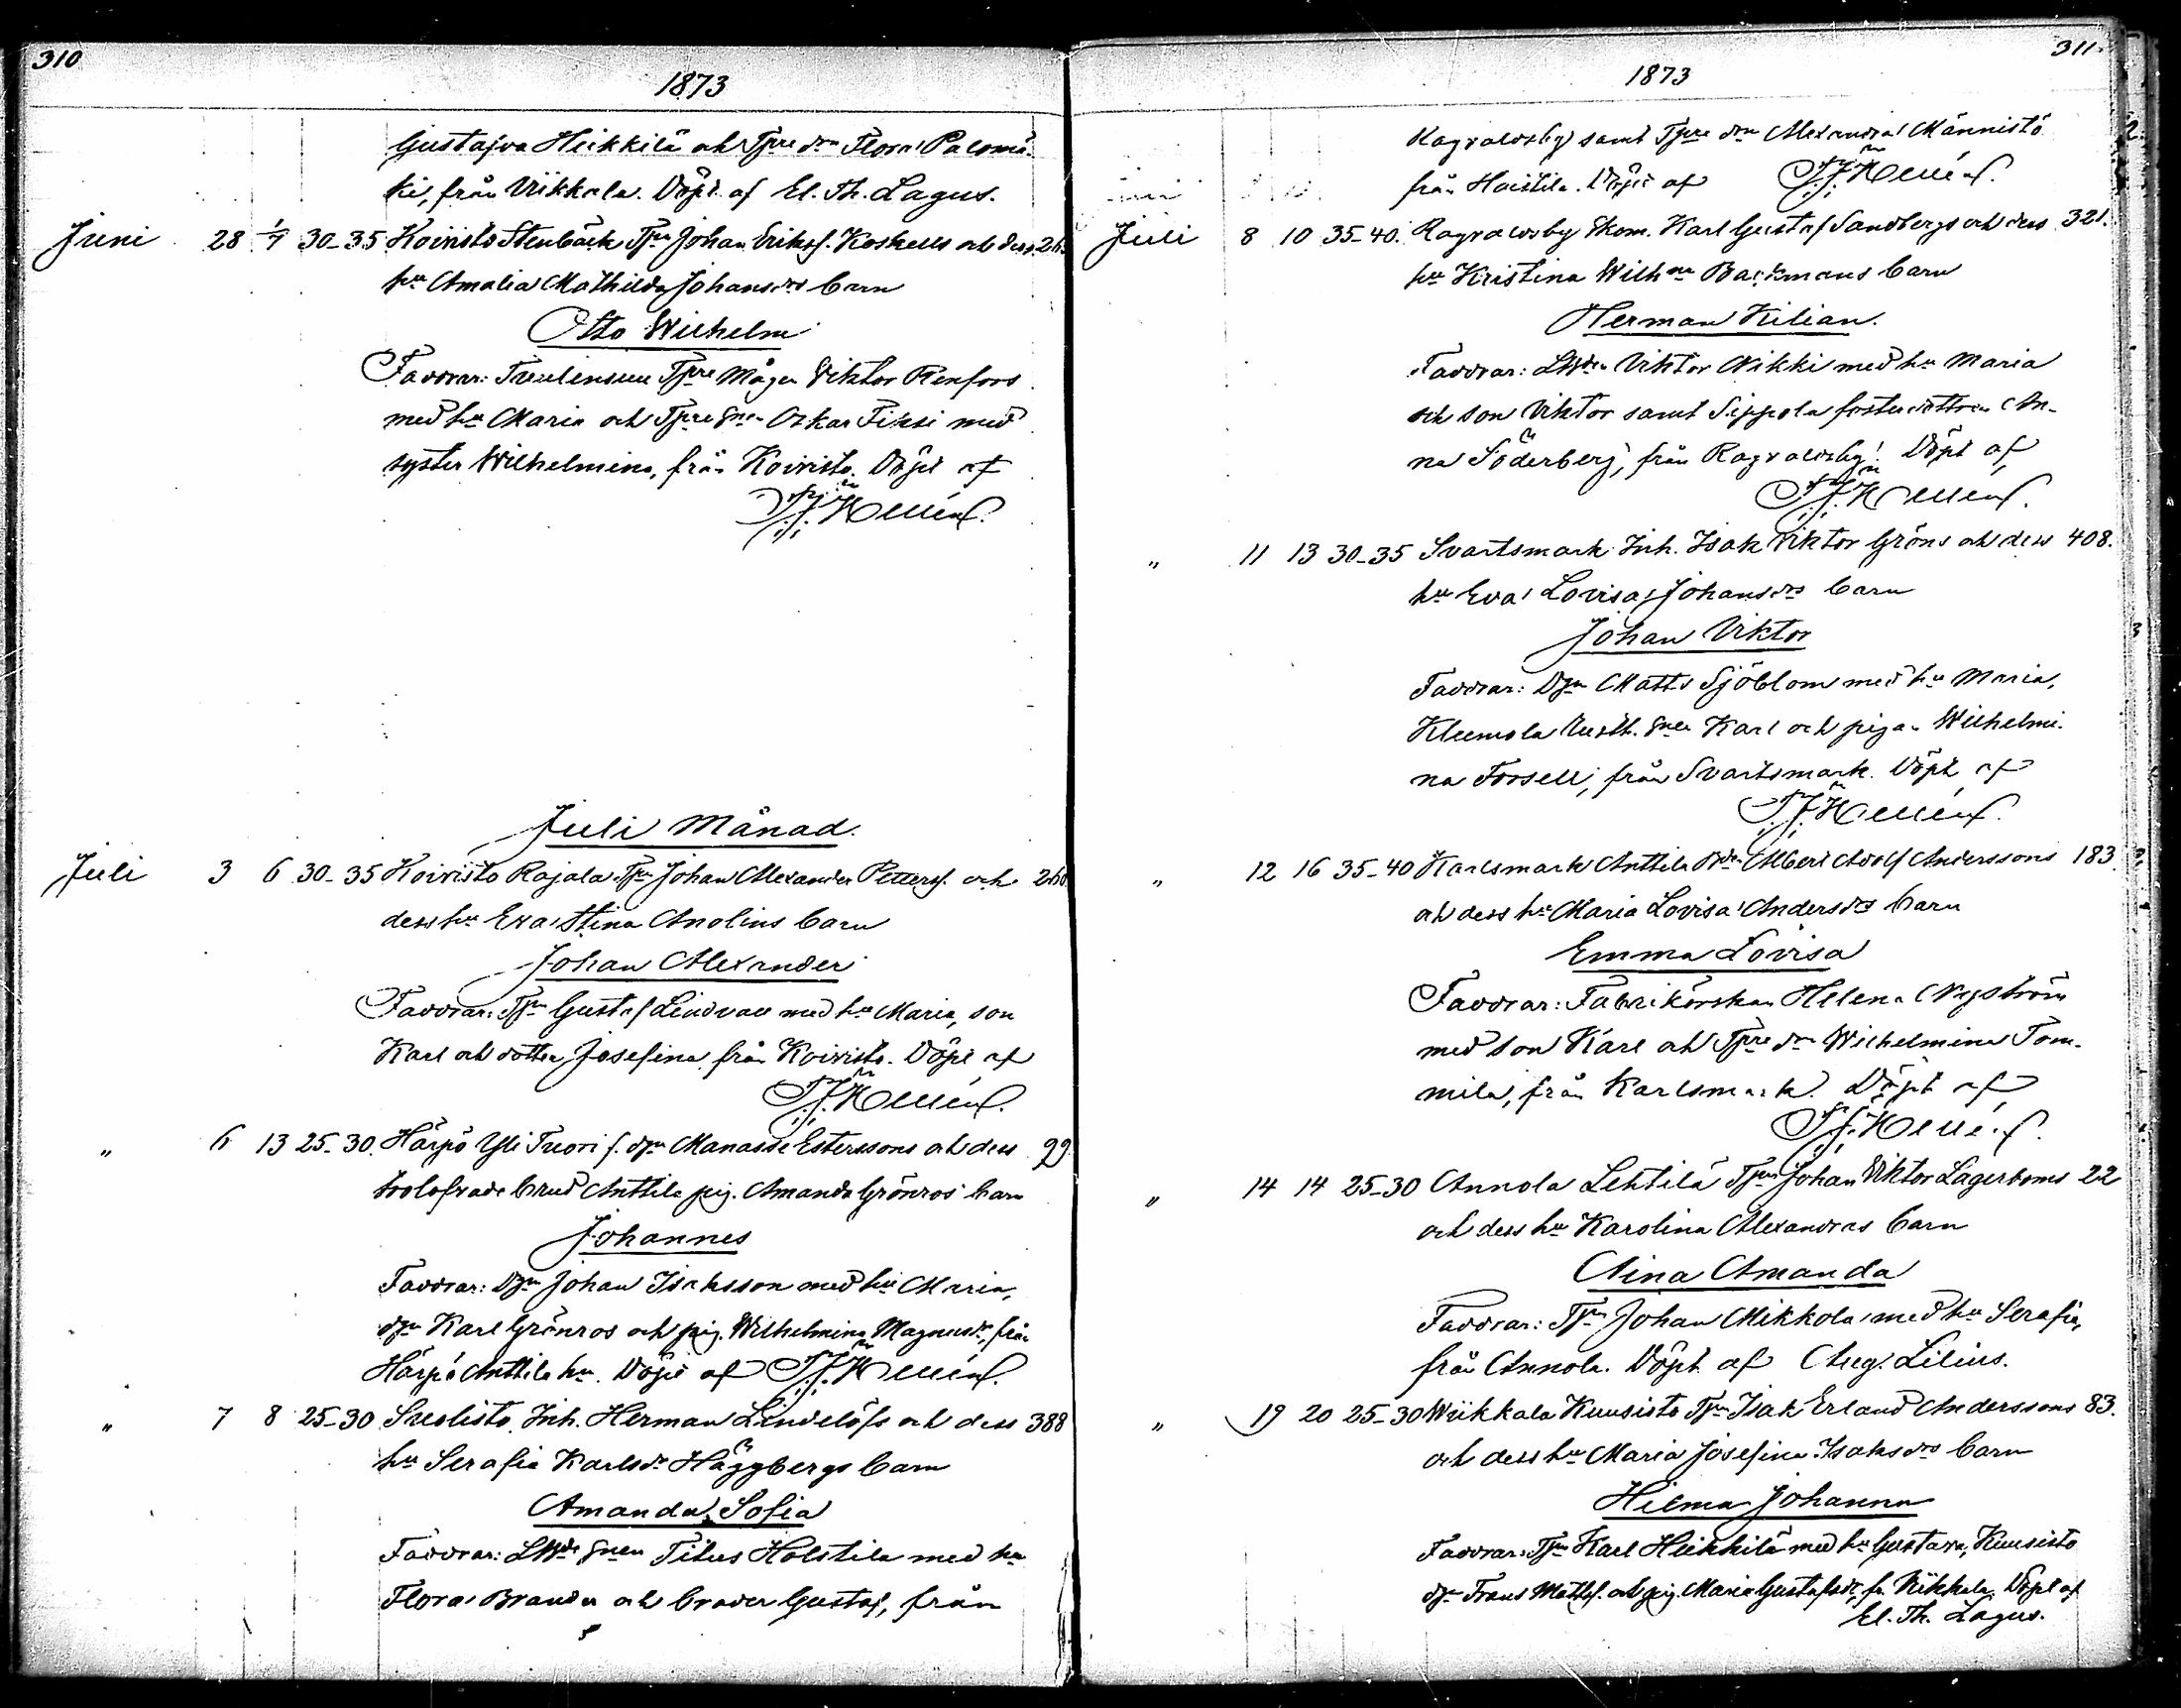 310
1873
Gustafva Heikkilä och Tpre dn Flora Palomä-
ki, från Viikkala. Döpt af El. Th. Lagus.
Juni 28 1/7 30-35 Koivisto Stenbäck Tpn Johan Eriks. Koskells och dess 26
hu Amalia Mathilda Johansdrs barn
Otto Wilhelm
Faddrar: Tpre Mågen Viktor Renfors
med hu Maria och Tpre Oskar Fiksi med
syster Wilhelmina, från Koivisto. Döpt af
Juli Månad.
Juli 3 6 30-35 Koivisto Rajala Tpn Johan Alexander Petters. och 260
dess hu Eva Stina Anolins barn
Johan Alexander
Faddrar: Tpn Gustaf Lindvall med hu Maria, son
Karl och dotter Josefina från Koivisto. Döpt af
" 6 13 25-30. Härpö Yli Tuori f. dgn Manasse Esterssons och dess 99
trolofvade brud Anttila pig. Amanda Grönros barn
Johannes
Faddrar: Dgn Johan Isaksson med hu Maria,
dgn Karl Grönros och pig. Wilhelmina Magnusdr, från
Härpö Anttila hn. Döpt af
" 7 8 25-30 Suolisto Inh. Herman Lindelöfs och dess 388
hu Serafia Karlsdr Häggbergs barn
Amanda Sofia
Faddrar: Titus Holstila med hu
Flora, Brander och broder Gustaf, från
311
1873
Ragvaldsby samt Tpre dn Alexandra Männistö
från Haistila. Döpt af
Juli 8 10 35-40. Ragvaldsby Skom. Karl Gustaf Sandbergs och dess 321.
hu Kristina Wilhna Backmans barn
Herman Kilian.
Faddrar: Viktor Nikki med hu Maria
och son Viktor samt Sippola fosterdottren An-
na Söderberg, från Ragvaldsby. Döpt af
" 11 13 30-35 Svartsmark Inh. Isak Viktor Gröns och dess 408.
hu Eva Lovisa Johansdrs barn
Johan Viktor
Faddrar: Dgn Matts Sjöblom med hu Maria,
Kleemola Karl och pigan Wilhelmi-
na Forsell, från Svartsmark. Döpt af
" 12 16 35-40 Karlsmark Anttila Albert Adolf Anderssons 183
och dess hu Maria Lovisa Andersdrs barn
Emma Lovisa
Faddrar: Fabrikörskan Helena Nyström
med son Karl och Tpre dn Wilhelmina Tom-
mila, från Karlsmark. Döpt af
" 14 14 25-30 Annola Lehtilä Tpn Johan Viktor Lagerboms 22
och dess hu Karolina Alexandras barn
Aina Amanda
Faddrar: Tpn Johan Mikkola med hu Serafia,
från Annola. Döpt af Aug. Lilius.
" 19 20 25-30 Wiikkala Kuusisto Tpn Isak Erland Anderssons 83.
och dess hu Maria Josefina Isaksdrs barn
Hilma Johanna
Faddrar: Tpn Karl Heikkilä med hu Gustava, Kuusisto
dgn Frans Mattss. och pig. Maria Gustafsdr, fr. Viikkala. Döpt af
El. Th. Lagus.